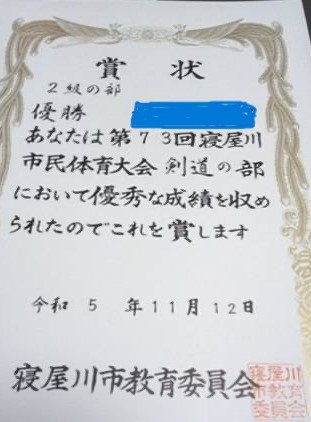 賞状
2級の部
優勝
あなたは第73回寝屋川
市民体育大会剣道の部
において優秀な成績を収め
られたのでこれを賞します
令和5年11月12日
寝屋川市教育委員会
寝屋川
市教育
委員会